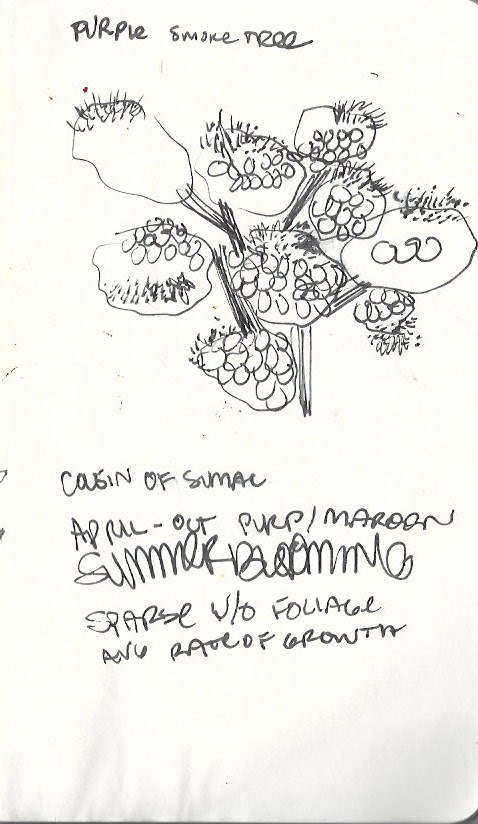 PURPLE SMOKE TREE
COUSIN OF SUMAC
APRIL - OCT PURP/MAROON
SUMMER BLOOMING
SPARSE W/O FOLIAGE
AVG RATE OF GROWTH